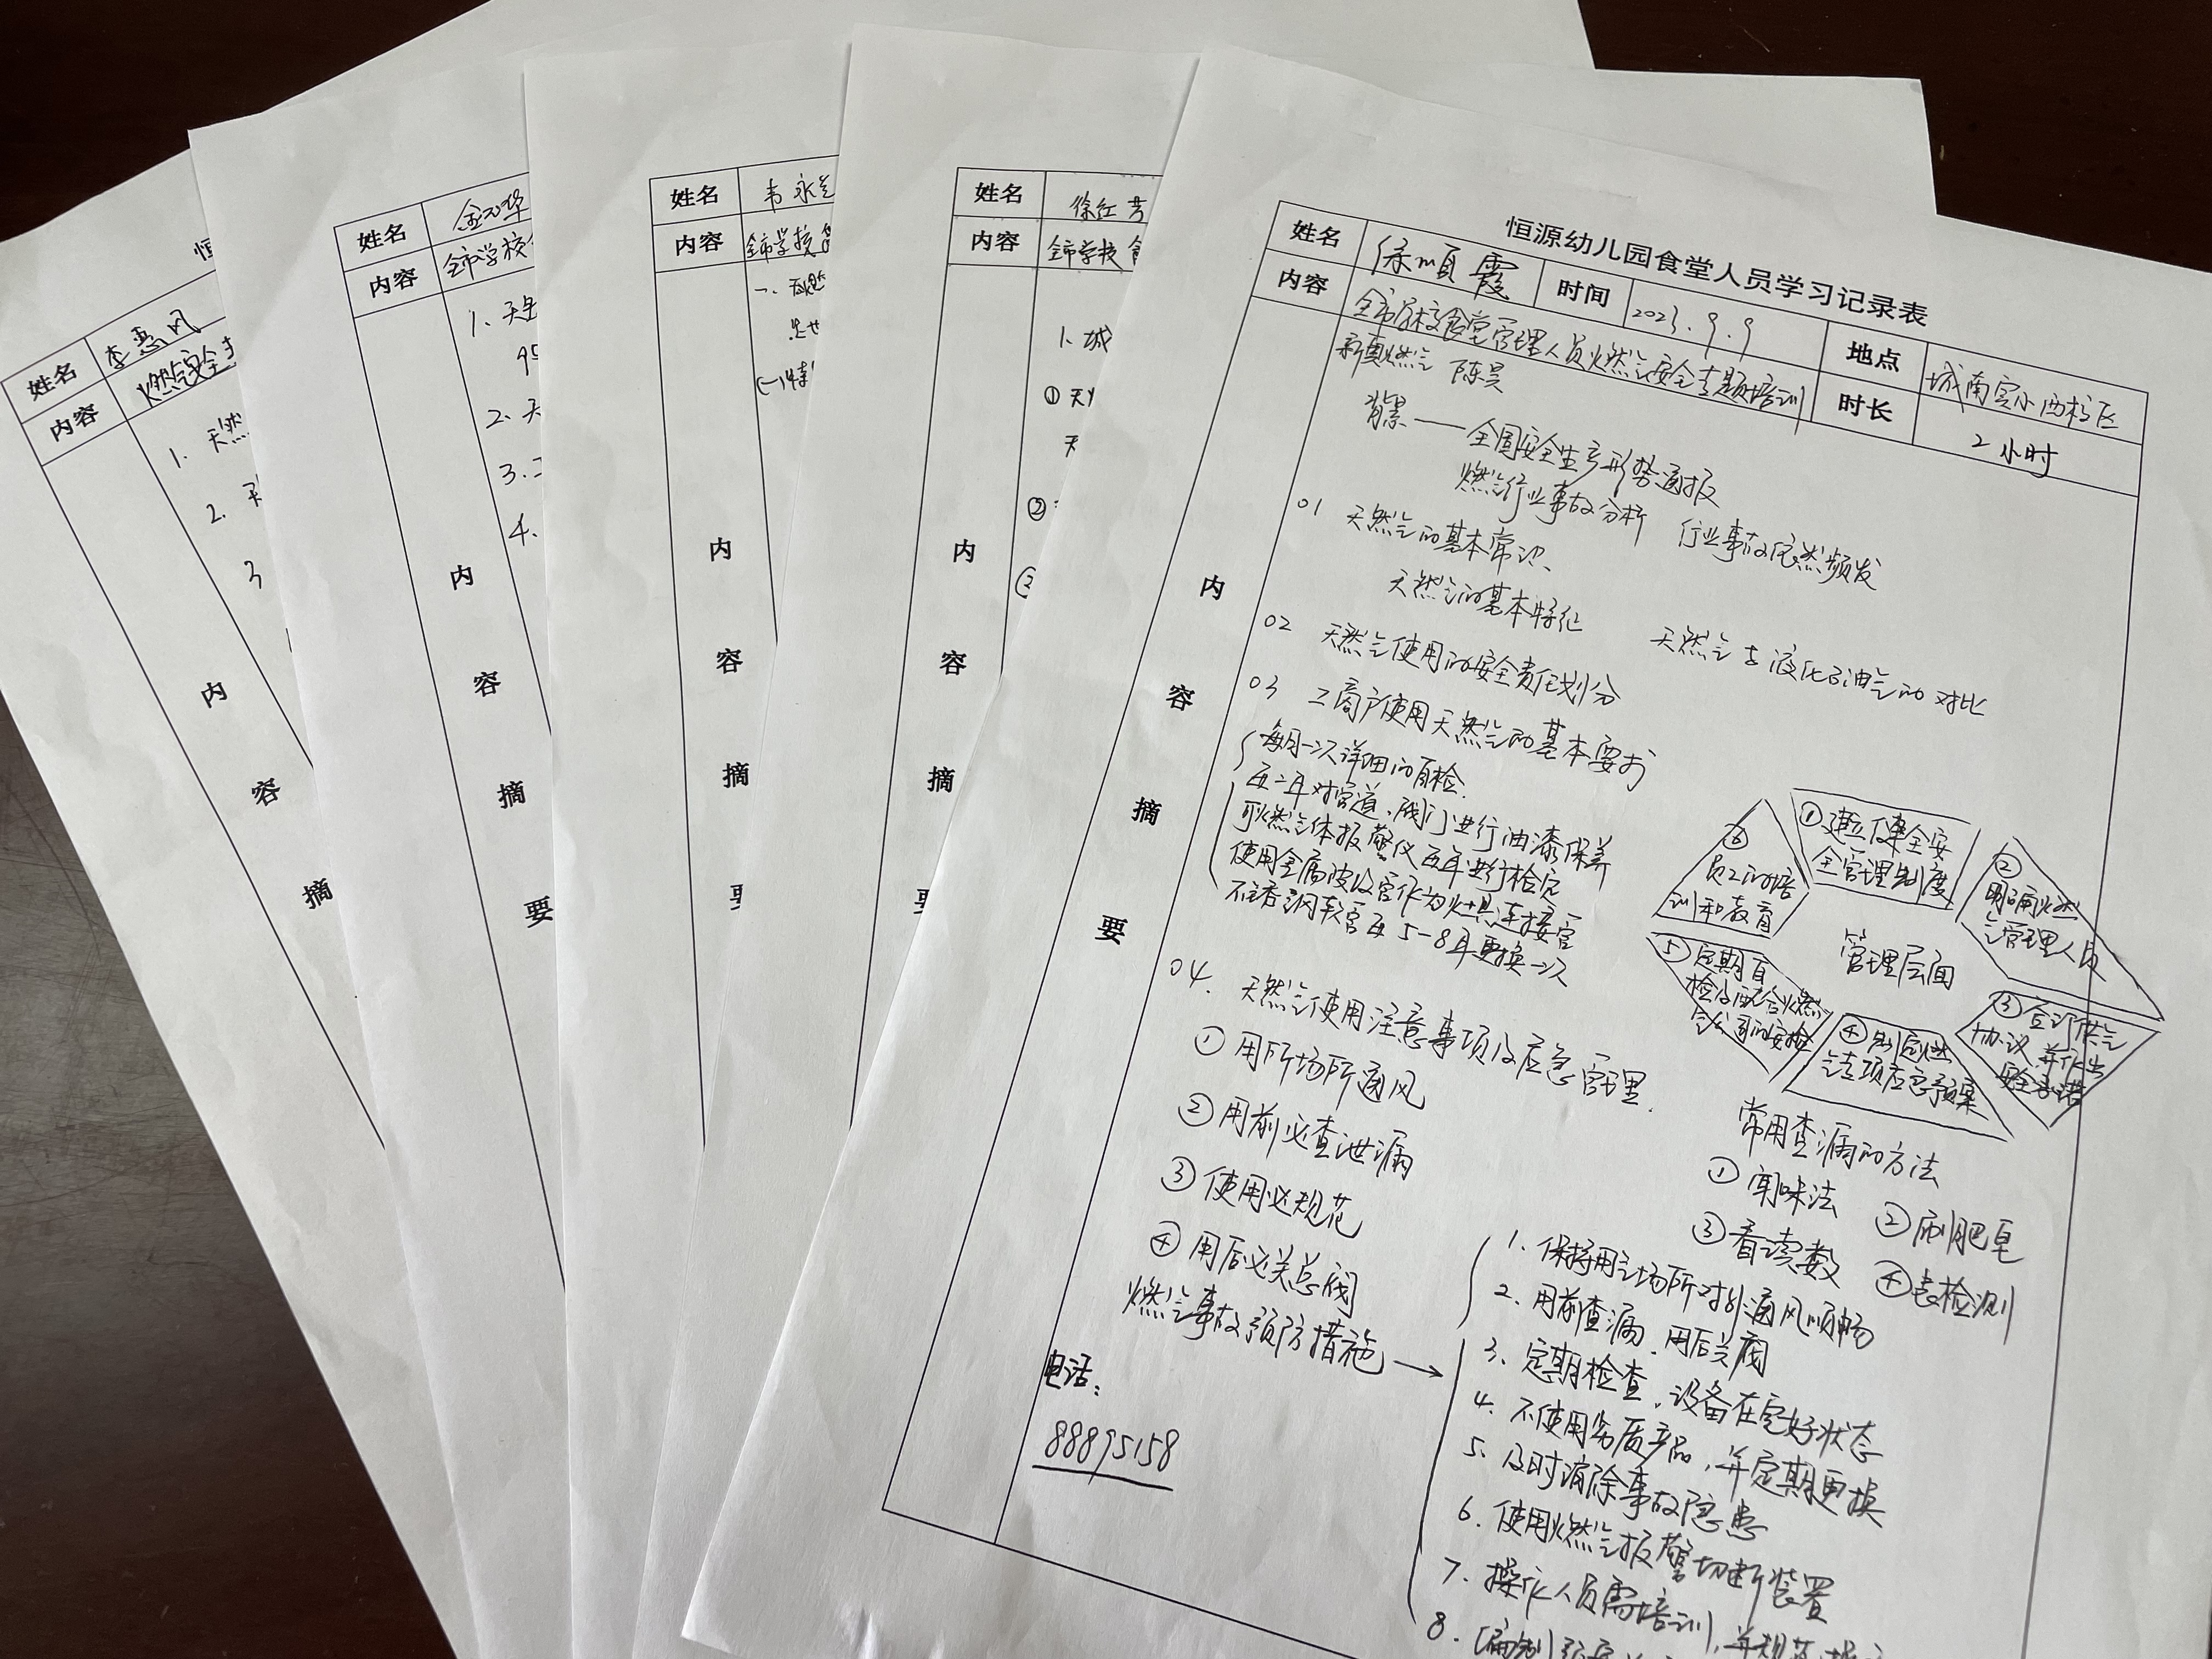 恒源幼儿园食堂人员学习记录表
姓名 徐顺霞 时间 2023.9.9 地点 城南实小西校区
内容 全市学校食堂管理人员燃气安全专题培训 时长 2小时
内容摘要
新奥燃气 陈昊
背景——全国安全生产形势通报
燃气行业事故分析 行业事故依然频发
01 天然气的基本常识、
天然气的基本特征 天然气与液化石油气的对比
02 天然气使用的安全责任划分
03 工商户使用天然气的基本要求
每月一次详细的自检.
每二年对管道、阀门进行油漆保养
可燃气体报警仪每年进行检定
使用金属波纹管作为灶具连接管
不锈钢软管每5-8年更换一次
管理层面
①建立健全安
全管理制度
②
明确燃
气管理人员
③签订供气
协议,并作出
安全承诺
④制定燃
气专项应急预案
⑤定期自
检及配合燃
气公司的安检
⑥
员工的培
训和教育
04. 天然气使用注意事项及应急管理.
①用所场所通风
②用前必查泄漏
③使用必规范
④用后必关总阀
常用查漏的方法
①闻味法 ②刷肥皂
③看读数 ④表检测
燃气事故预防措施→
1. 保持用气场所对外通风顺畅
2. 用前查漏.用后关阀
3. 定期检查,设备在完好状态
4. 不使用劣质产品,并定期更换
5. 及时消除事故隐患
6. 使用燃气报警切断装置
7. 操作人员需培训,并规范操
8.
电话:
88895158
姓名 徐红芳
内容 全市学校食
1. 城
① 天
天
②
③
内容摘要
姓名 韦永兰
内容 全市学校食
一、天然
(一)特
内容摘要
姓名 金
内容 全市学校
1. 天
2. 天
3. 工
4.
内容摘要
恒
姓名 李惠风
内容 燃气安全
1. 天然
2. 天
3
内容摘